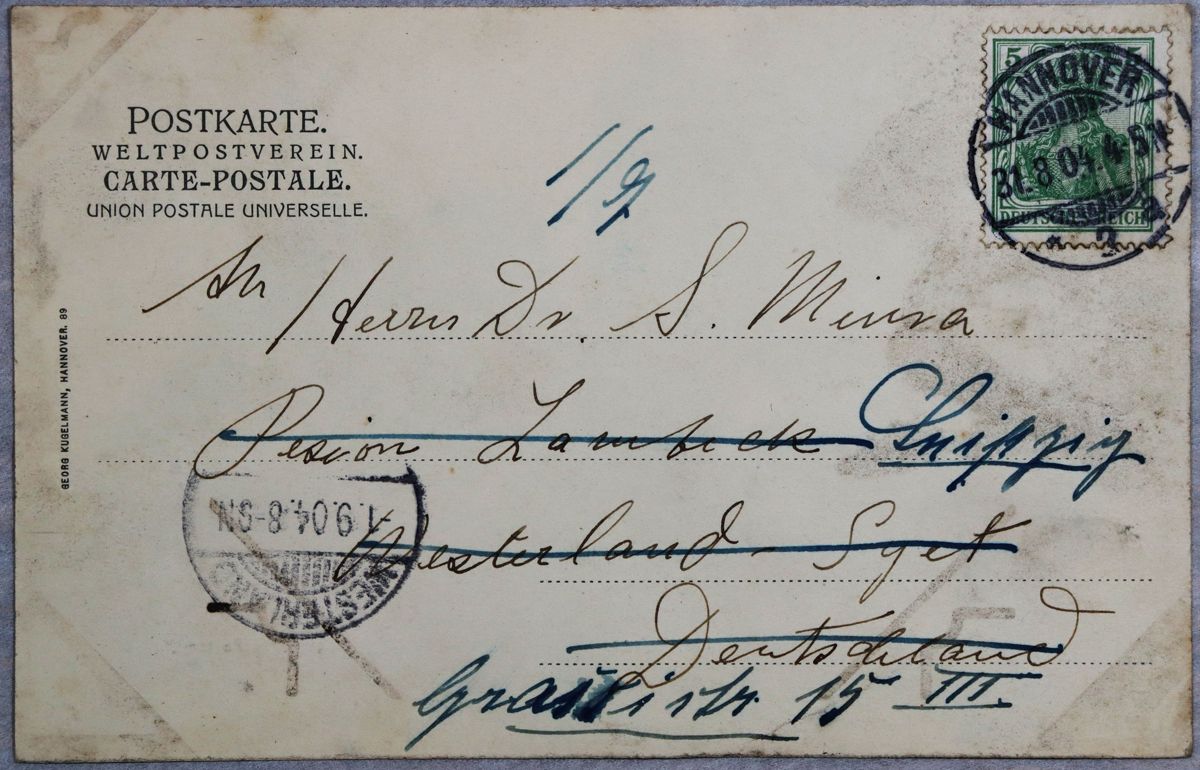 POSTKARTE.
WELTPOSTVEREIN.
CARTE-POSTALE.
UNION POSTALE UNIVERSELLE.
1/9
5 5
DEUTSCHES REICH
HANNOVER
31.8.04.4-5N
* 2 a
An Herrn Dr. S. Miura
Pesion Lambeck Leipzig
Westerland - Sylet
Deutschland
Grassistr. 15 III.
GEORG KUGELMANN, HANNOVER. 89
WESTERLAND
1.9.04.8-9N